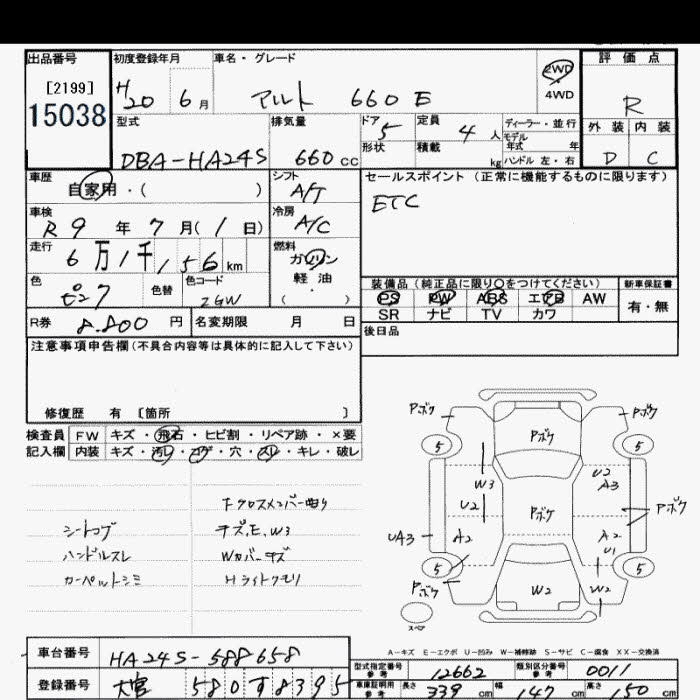 出品番号
[2199]
15038
初度登録年月
H20 6月
車名・グレード
アルト 660 E
2WD
4WD
評価点
R
外装 内装
D C
型式
DBA-HA24S
排気量
660 CC
ドア 5
形状
定員 4 人
積載 kg
ディーラー・並行
モデル年式 年
ハンドル 左・右
車歴
自家用・( )
シフト
A/T
車検
R 9 年 7 月 ( 1 日)
冷房
A/C
走行
6万1千156 km
燃料
ガソリン
軽油
( )
色
ピンク
色替
色コード
ZGW
R券 8.800 円
名変期限 月 日
セールスポイント (正常に機能するものに限ります)
ETC
装備品 (純正品に限り〇をつけてください)
新車保証書
PS PW ABS エアB AW
SR ナビ TV カワ
有・無
後日品
注意事項申告欄 (不具合内容等は具体的に記入して下さい)
修復歴 有 〔箇所 〕
検査員記入欄
FW キズ・飛石・ヒビ割・リペア跡・×要
内装 キズ・汚レ・コゲ・穴・スレ・キレ・破レ
シートコゲ
ハンドルスレ
カーペットシミ
Fクロスメンバー曲り
キズ,E,W3
Wカバーキズ
Hライトクモリ
Pボケ
Pボケ
Pボケ
5
5
W3
U2
A3
U2
Pボケ
Pボケ
UA3
A2
A2
U1
5
5
Pボケ
W2
W2
スペア
A-キズ E-エクボ U-凹み W-補修跡 S-サビ C-腐食 XX-交換済
車台番号
HA24S-588658
登録番号
大宮 580 す 8395
型式指定番号
参考
12662
類別区分番号
参考
0011
車庫証明用
参考
長さ 339 cm
幅 147 cm
高さ 150 cm